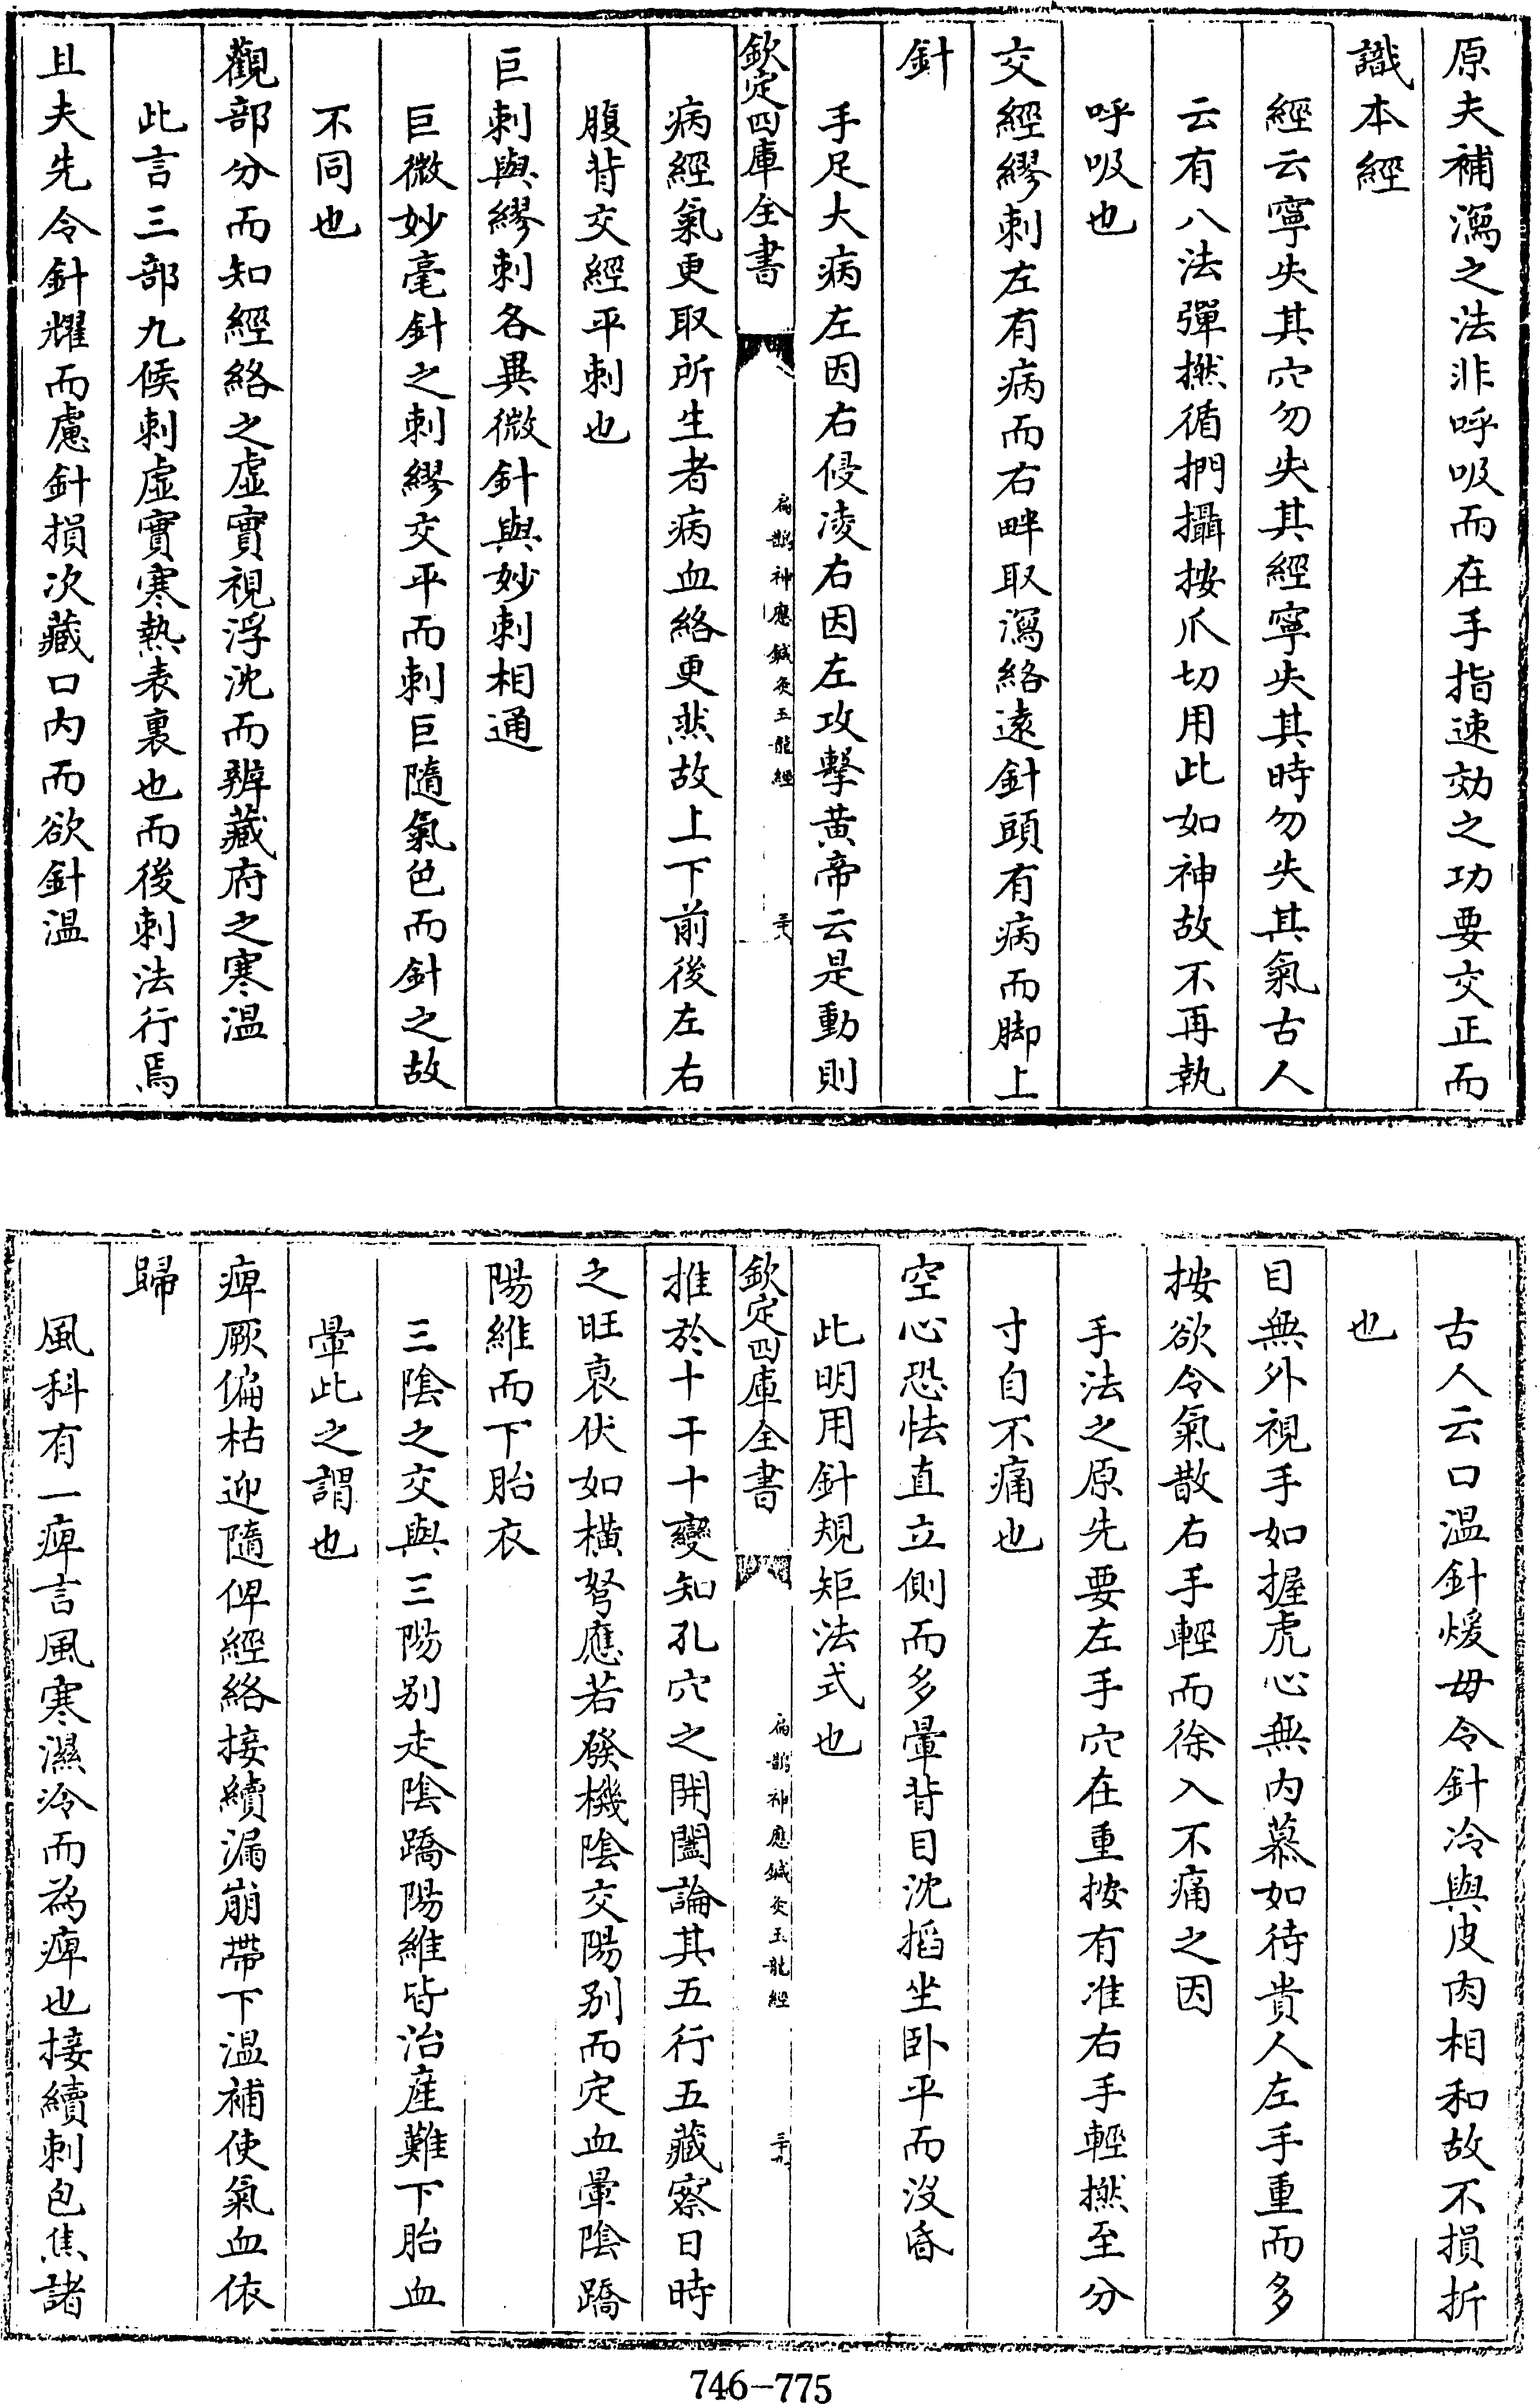 原夫補瀉之法非呼吸而在手指速効之功要交正而
識本經
經云寧失其穴勿失其經寧失其時勿失其氣古人
云有八法彈撚循捫攝按爪切用此如神故不再執
呼吸也
交經繆刺左有病而右畔取瀉絡遠針頭有病而脚上
針
手足大病左因右侵凌右因左攻擊黄帝云是動則
欽定四庫全書
扁鵲神應鍼灸玉龍經
三六
病經氣更取所生者病血絡更然故上下前後左右
腹背交經平刺也
巨刺與繆刺各異微針與妙刺相通
巨微妙毫針之刺繆交平而刺巨隨氣色而針之故
不同也
觀部分而知經絡之虛實視浮沈而辨藏府之寒溫
此言三部九候刺虛實寒熱表裏也而後刺法行焉
且夫先令針耀而慮針損次藏口內而欲針溫
古人云口溫針煖毋令針冷與皮肉相和故不損折
也
目無外視手如握虎心無內慕如待貴人左手重而多
按欲令氣散右手輕而徐入不痛之因
手法之原先要左手穴在重按有准右手輕撚至分
寸自不痛也
空心恐怯直立側而多暈背目沈掐坐卧平而沒昏
此明用針規矩法式也
欽定四庫全書
扁鵲神應鍼灸玉龍經
三九
推於十干十變知孔穴之開闔論其五行五藏察日時
之旺衰伏如橫弩應若發機陰交陽别而定血暈陰蹻
陽維而下胎衣
三陰之交與三陽别走陰蹻陽維皆治産難下胎血
暈此之謂也
痺厥偏枯迎隨俾經絡接續漏崩帶下溫補使氣血依
歸
風科有一痺言風寒濕冷而為痺也接續刺包焦諸
746-775